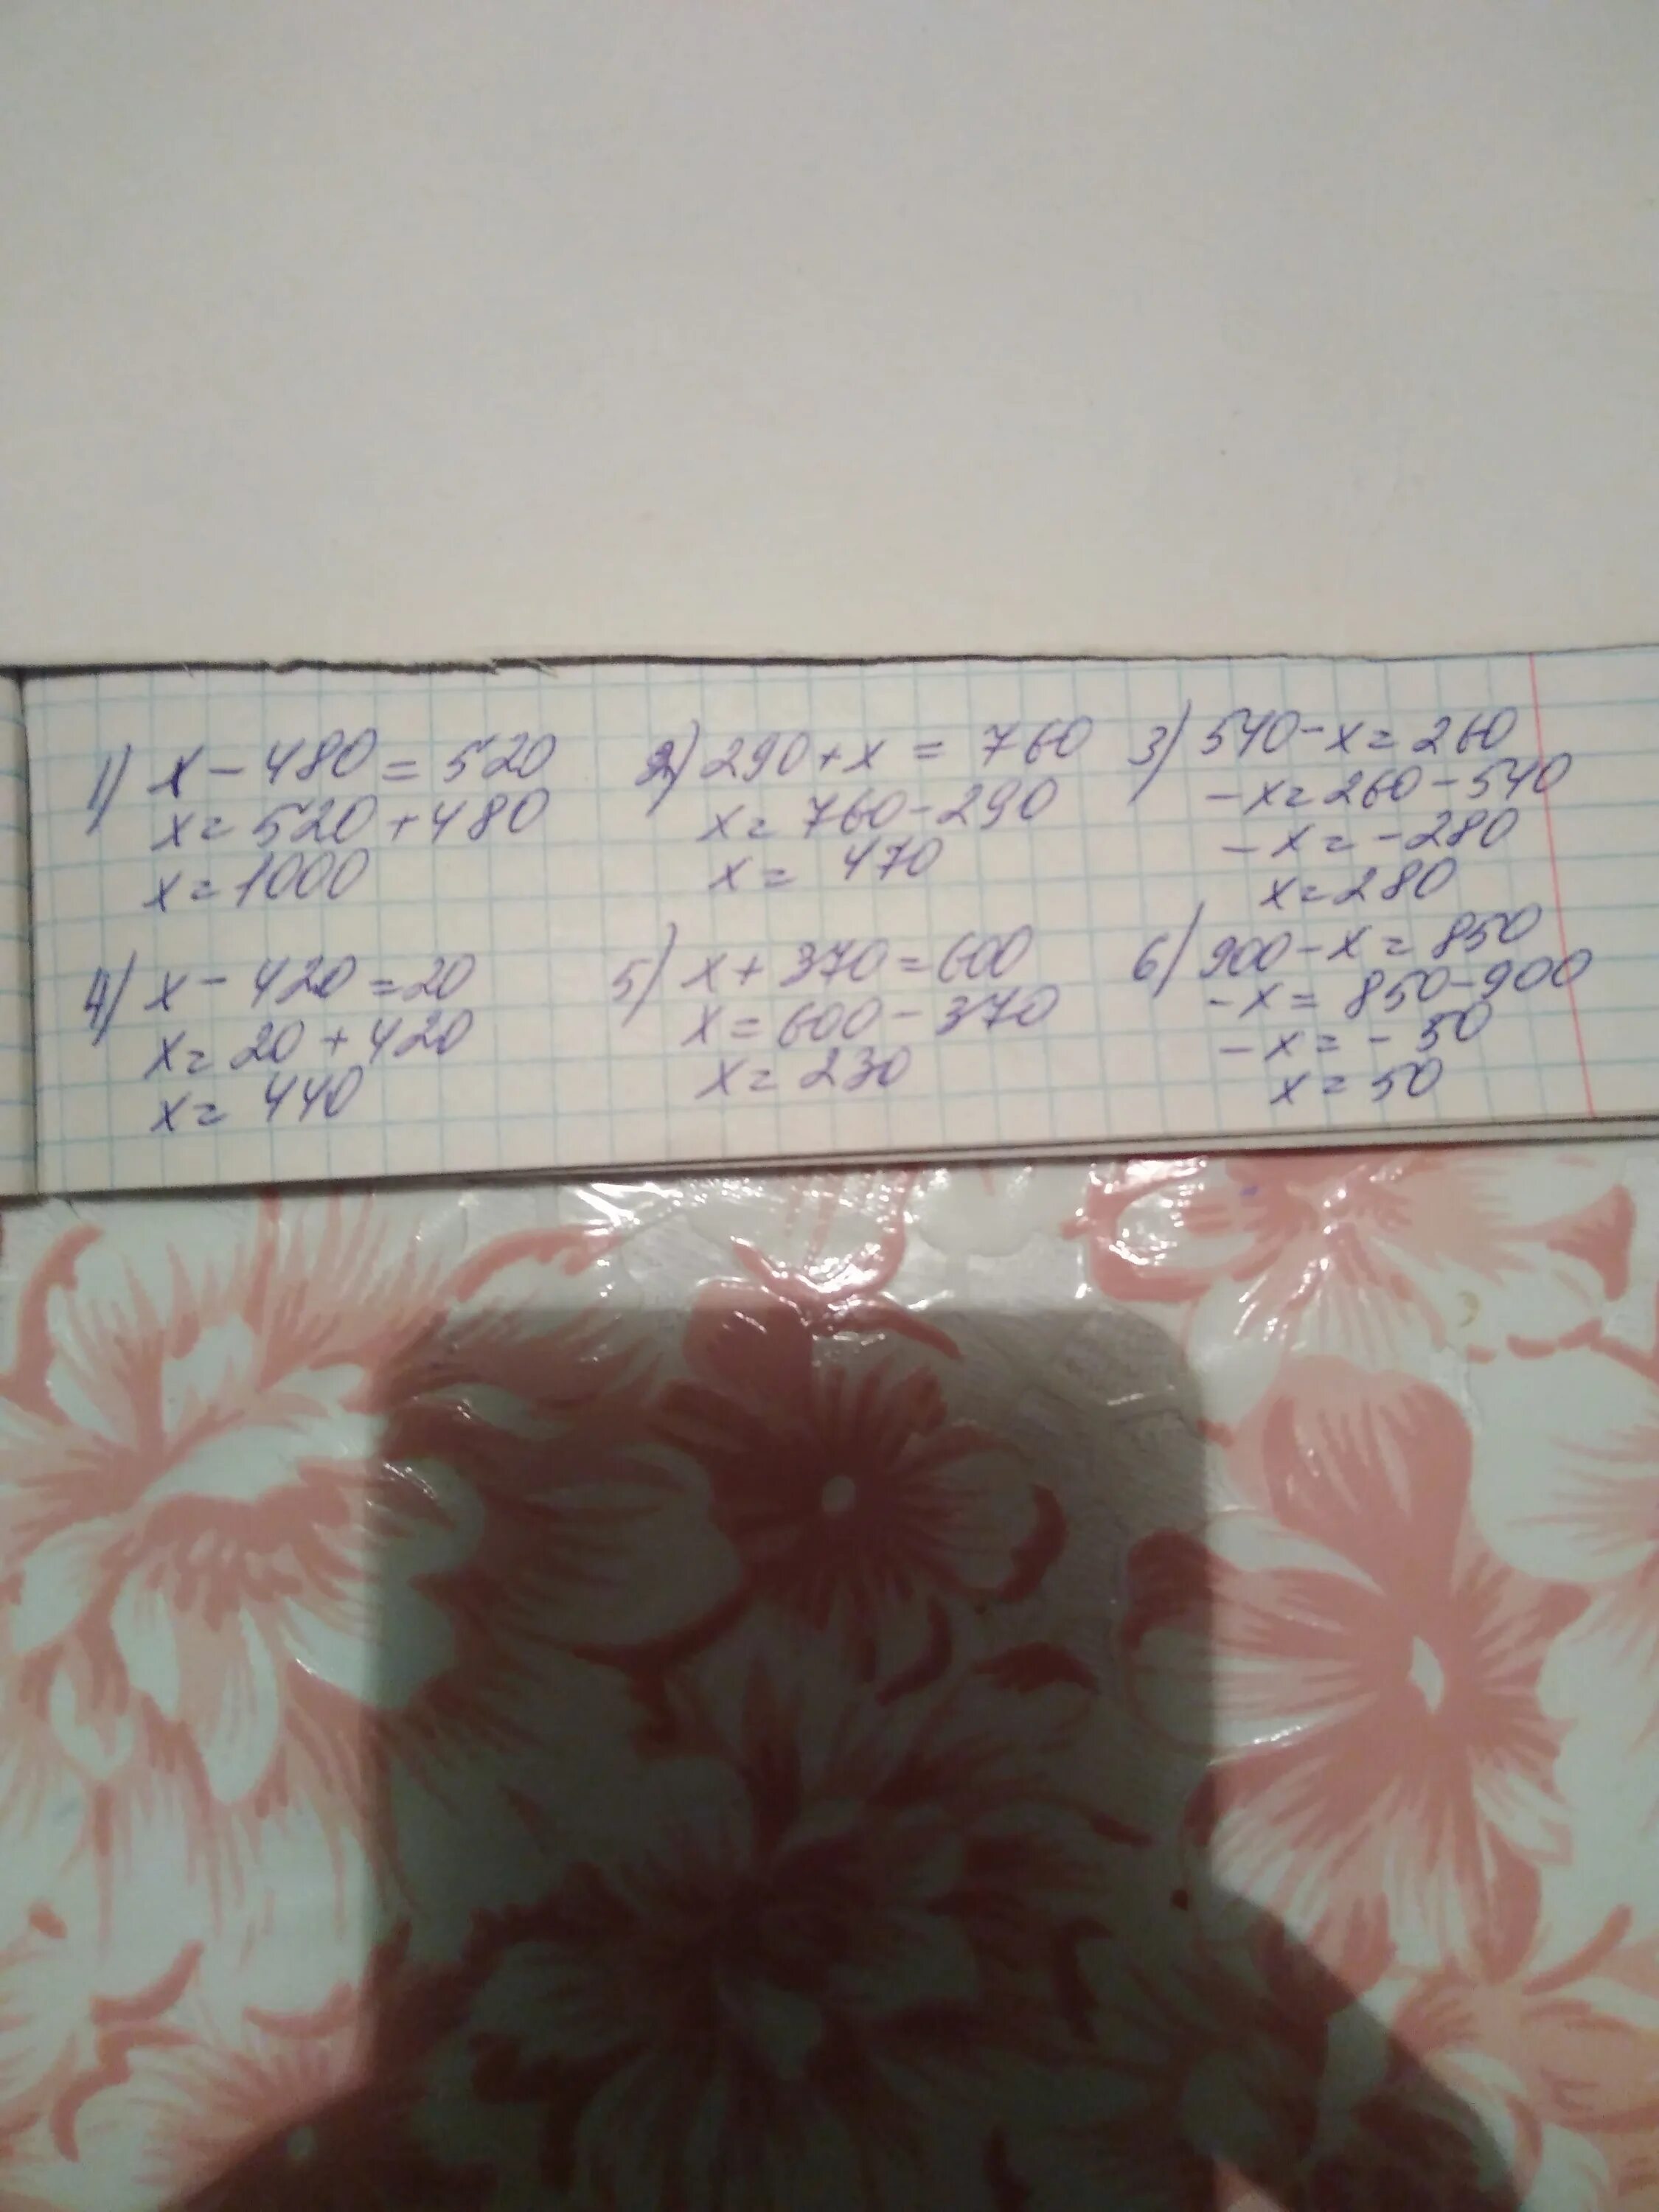 1) x - 480 = 520
x = 520 + 480
x = 1000
2) 290 + x = 760
x = 760 - 290
x = 470
3) 540 - x = 260
- x = 260 - 540
- x = - 280
x = 280
4) x - 420 = 20
x = 20 + 420
x = 440
5) x + 370 = 600
x = 600 - 370
x = 230
6) 900 - x = 850
- x = 850 - 900
- x = - 50
x = 50